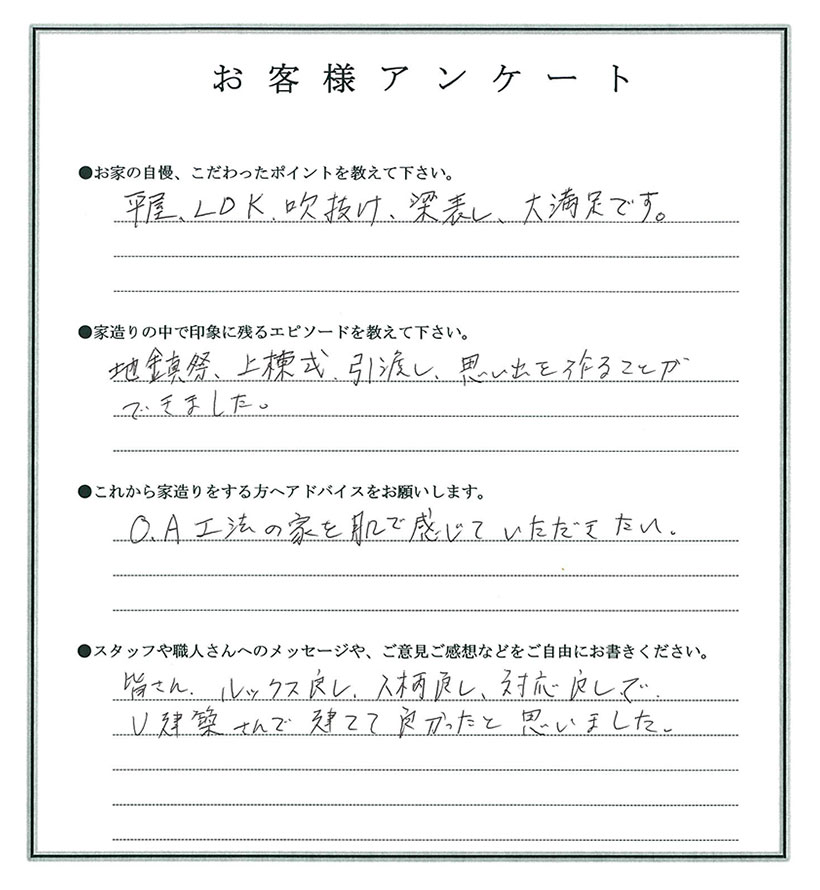 お客様アンケート
●お家の自慢、こだわったポイントを教えて下さい。
平屋、LDK、吹抜け、梁表し、大満足です。
●家造りの中で印象に残るエピソードを教えて下さい。
地鎮祭、上棟式、引渡し、思い出を作ることが
できました。
●これから家造りをする方へアドバイスをお願いします。
O.A工法の家を肌で感じていただきたい。
●スタッフや職人さんへのメッセージや、ご意見ご感想などをご自由にお書きください。
皆さん、ルックス良し、人柄良し、対応良しで、
U建築さんで建てて良かったと思いました。